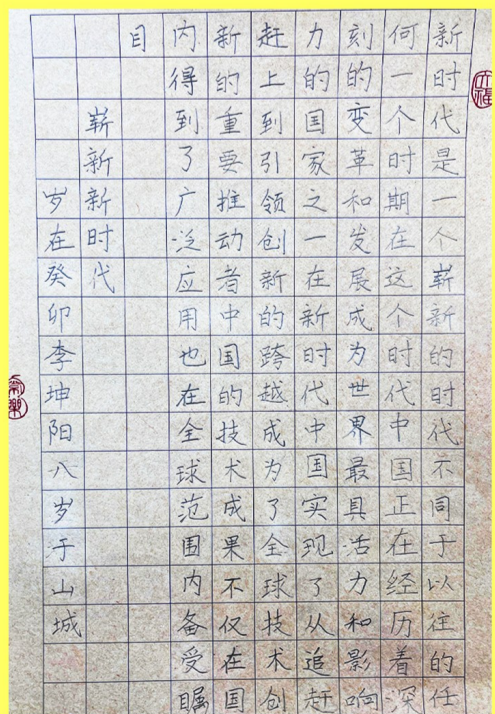 新时代是一个崭新的时代不同于以往的任
何一个时期在这个时代中国正在经历着深
刻的变革和发展成为世界最具活力和影响
力的国家之一在新时代中国实现了从追赶
赶上到引领创新的跨越成为了全球技术创
新的重要推动者中国的技术成果不仅在国
内得到了广泛应用也在全球范围内备受瞩
目
崭新新时代
岁在癸卯李坤阳八岁于山城